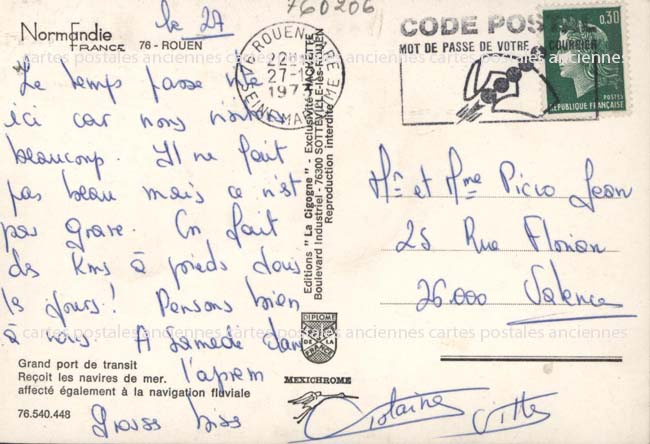 760206
le 27
Normandie
FRANCE 76 - ROUEN
ROUEN GARE
22
27-1
197
SEINE MARITIME
CODE POSTAL
MOT DE PASSE DE VOTRE COURRIER
0,30
POSTES
REPUBLIQUE FRANÇAISE
Le temps passe vite
ici car nous visitons
beaucoup. Il ne fait
pas beau mais ce n'est
pas grave. On fait
des kms à pieds tous
les jours! Pensons bien
à vous. A Samedi dans
l'aprem
Gross biss
Mr et Mme Picio Jean
25 Rue Florian
26.000 Valence
Editions "La Cigogne" - Exclusivité HACHETTE
Boulevard Industriel - 76300 SOTTEVILLE-lès-ROUEN
Reproduction interdite
DIPLOME
DE LA
FRANCE
MEXICHROME
Grand port de transit
Reçoit les navires de mer.
affecté également à la navigation fluviale
76.540.448
cartes postales anciennes cartes postales anciennes cartes postales anciennes
cartes postales anciennes cartes postales anciennes cartes postales anciennes